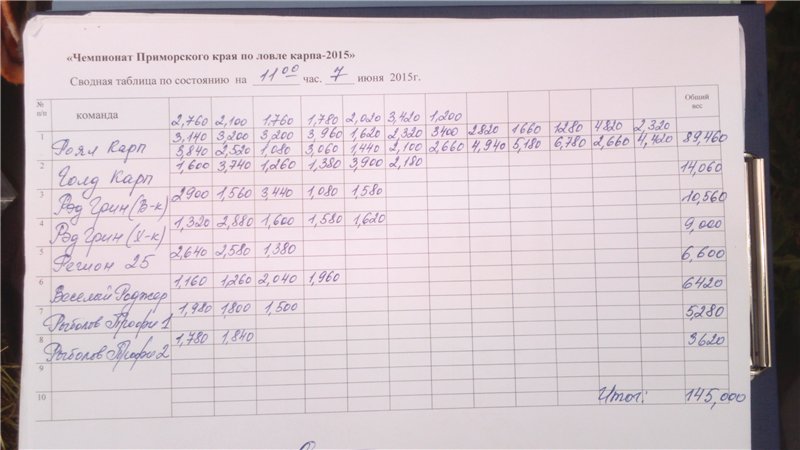 «Чемпионат Приморского края по ловле карпа-2015»
Сводная таблица по состоянию на 11 00 час. 7 июня 2015г.
№ п/п команда Общий вес
2,760 2,100 1.760 1,780 2,020 3,420 1,200
1 3,140 3,200 3,200 3,960 1,620 2,320 3400 2820 1660 1280 4820 2,320
Роял Карп 3,840 2,520 1,080 3,060 1,440 2,100 2,660 4,940 5,180 6,780 2,660 4,420 89,460
2 1,600 3,740 1,260 1,380 3,900 2,180
Голд Карп 14,060
3 2900 1,560 3,440 1,080 1,580
Рэд Грин (В-к) 10,560
4 1,320 2,880 1,600 1,580 1,620
Рэд Грин (Х-к) 9,000
5 2,640 2,580 1,380
Регион 25 6,600
6 1,160 1,260 2,040 1,960
Веселый Роджер 6420
7 1,980 1,800 1,500
Рыболов Профи 1 5,280
8 1,780 1,840
Рыболов Профи 2 3620
9
10 Итог: 145,000